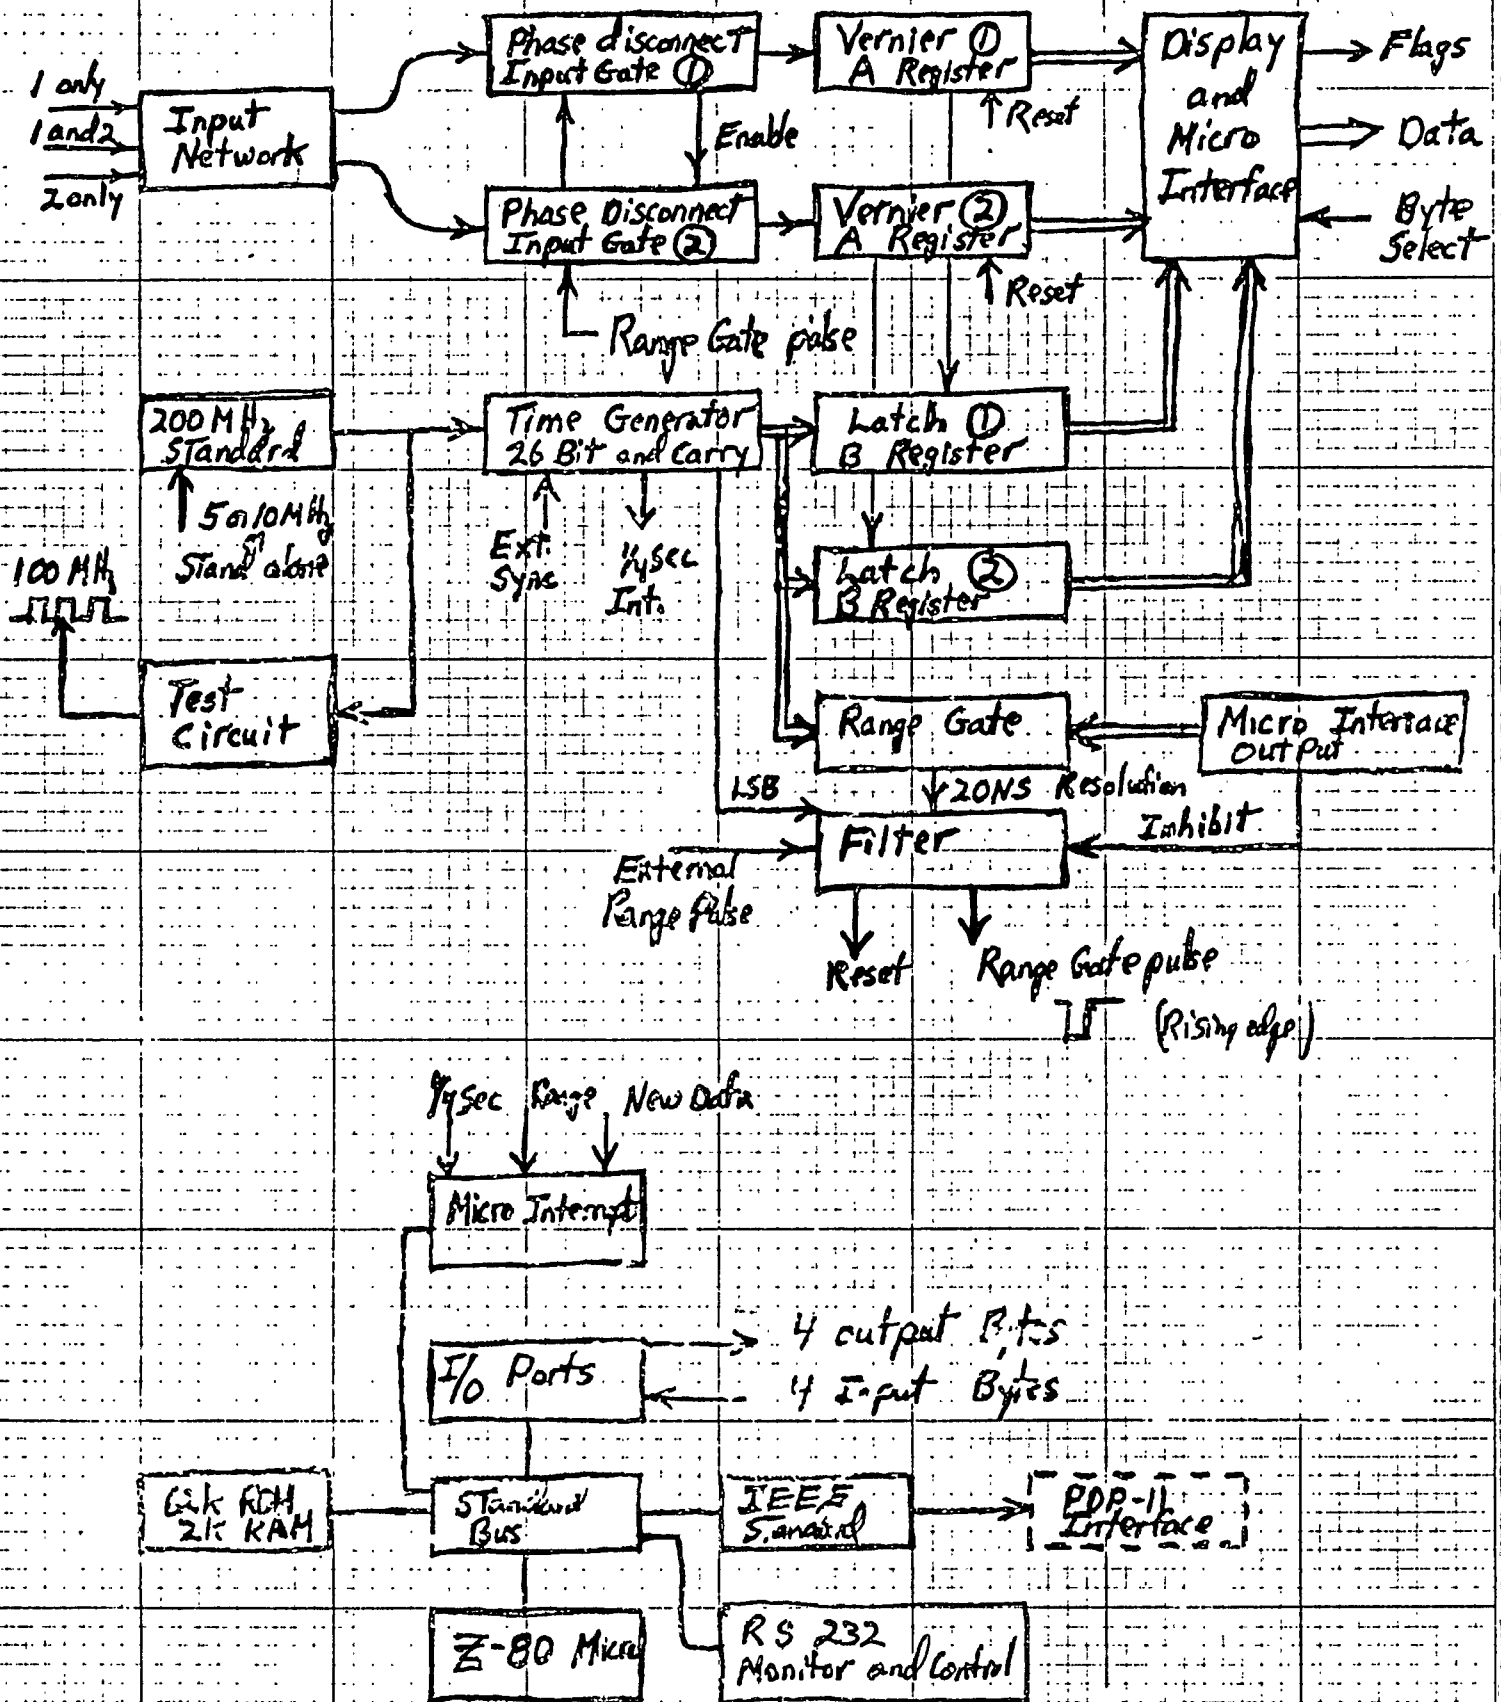 1 only
1 and 2
2 only
Input
Network
Phase disconnect
Input Gate ①
Enable
Phase Disconnect
Input Gate ②
Range Gate pulse
Vernier ①
A Register
Reset
Vernier ②
A Register
Reset
Display
and
Micro
Interface
Flags
Data
Byte
Select
200 MHz
Standard
5 or 10 MHz
Stand alone
100 MHz
Test
Circuit
Time Generator
26 Bit and Carry
Ext.
Sync
1/4 sec
Int.
Latch ①
B Register
Latch ②
B Register
Range Gate
Micro Interface
Output
LSB
20NS Resolution
Inhibit
Filter
External
Range Pulse
Reset
Range Gate pulse
(Rising edge)
1/4 Sec Range New Data
Micro Interrupt
I/O Ports
4 output Bytes
4 Input Bytes
ROM
2K RAM
Standard
Bus
IEEE
Standard
PDP-11
Interface
Z-80 Micro
RS 232
Monitor and Control